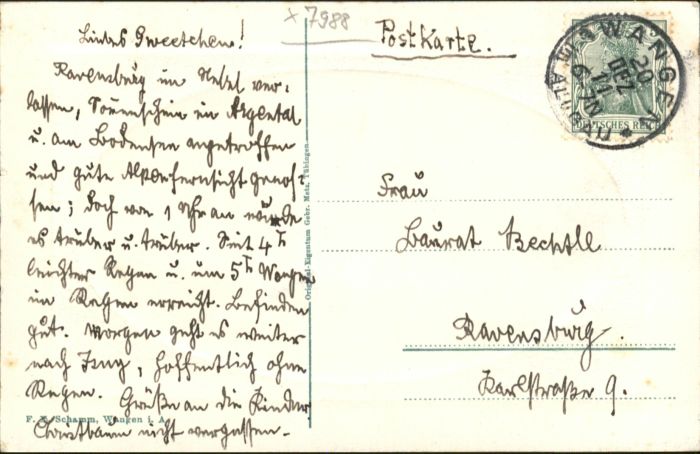 x 7988
Liebes Gweetchen!
Ravensburg im Nebel ver-
lassen, Sonnenschein im Argental
u. am Bodensee angetroffen
und gute Alpenfernsicht genos-
sen; doch von 1 Uhr an wurde
es trüber u. trüber. Seit 4 h
leichter Regen u. um 5 h Wangen
im Regen erreicht. Befinden
gut. Morgen geht es weiter
nach Isny, hoffentlich ohne
Regen. Grüße an die Kinder
Christbaum nicht vergessen.-
F. X. Schamm, Wangen i. A.
Original-Eigentum Gebr. Metz, Tübingen.
Postkarte.
WANGEN
20
DEZ
11
DEUTSCHES REICH
Frau
Baurat Bechtle
Ravensburg.
Karlstraße 9.